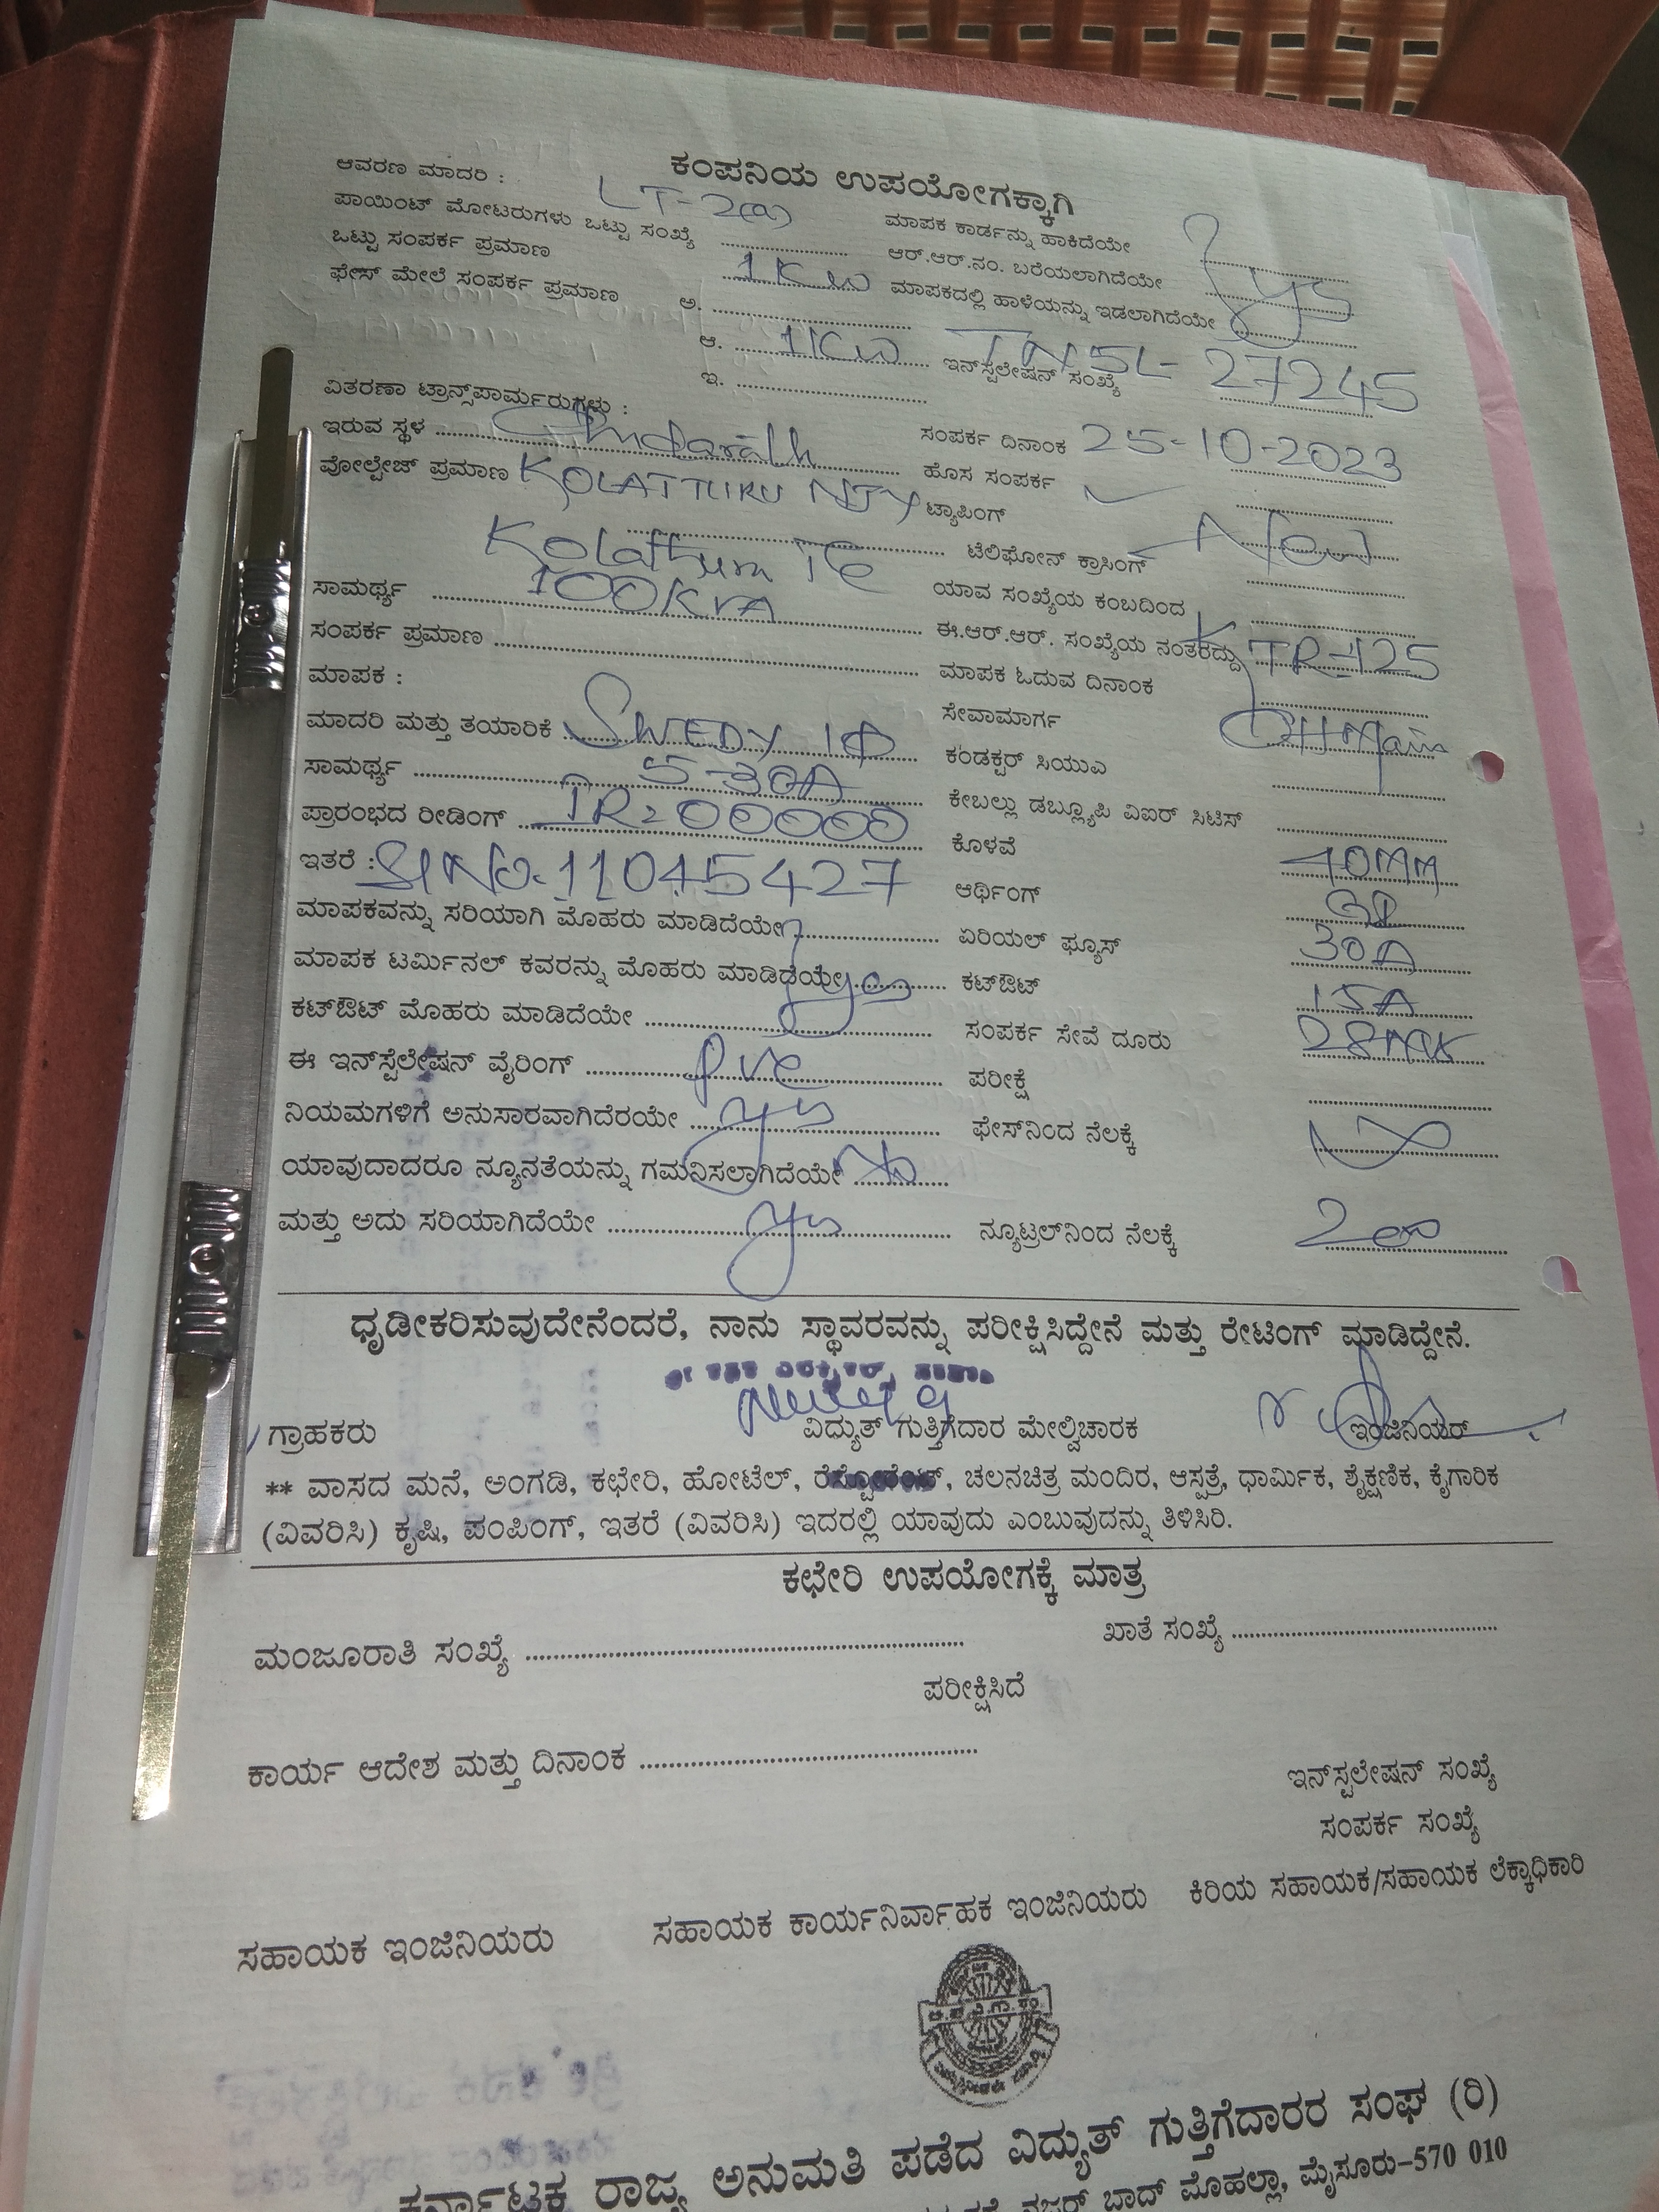 ಕಂಪನಿಯ ಉಪಯೋಗಕ್ಕಾಗಿ
ಆವರಣ ಮಾದರಿ : LT-2(a)
ಪಾಯಿಂಟ್ ಮೋಟರುಗಳು ಒಟ್ಟು ಸಂಖ್ಯೆ
ಒಟ್ಟು ಸಂಪರ್ಕ ಪ್ರಮಾಣ 1KW
ಫೇಸ್ ಮೇಲೆ ಸಂಪರ್ಕ ಪ್ರಮಾಣ ಅ.
ಆ. 1KW
ಇ.
ವಿತರಣಾ ಟ್ರಾನ್ಸ್‌ಪಾರ್ಮರುಗಳು :
ಇರುವ ಸ್ಥಳ
ವೋಲ್ಟೇಜ್ ಪ್ರಮಾಣ KOLATTURU NJY
Kolathuru Tc
ಸಾಮರ್ಥ್ಯ 100KVA
ಸಂಪರ್ಕ ಪ್ರಮಾಣ
ಮಾಪಕ :
ಮಾದರಿ ಮತ್ತು ತಯಾರಿಕೆ SWEDY 1Φ
ಸಾಮರ್ಥ್ಯ 5-30A
ಪ್ರಾರಂಭದ ರೀಡಿಂಗ್ IR=00000
ಇತರೆ : Sl No. 11045427
ಮಾಪಕವನ್ನು ಸರಿಯಾಗಿ ಮೊಹರು ಮಾಡಿದೆಯೇ
ಮಾಪಕ ಟರ್ಮಿನಲ್ ಕವರನ್ನು ಮೊಹರು ಮಾಡಿದೆಯೇ yes
ಕಟ್‌ಔಟ್ ಮೊಹರು ಮಾಡಿದೆಯೇ
ಈ ಇನ್‌ಸ್ಪಲೇಷನ್ ವೈರಿಂಗ್ pvc
ನಿಯಮಗಳಿಗೆ ಅನುಸಾರವಾಗಿದೆರಯೇ yes
ಯಾವುದಾದರೂ ನ್ಯೂನತೆಯನ್ನು ಗಮನಿಸಲಾಗಿದೆಯೇ No
ಮತ್ತು ಅದು ಸರಿಯಾಗಿದೆಯೇ yes
ಮಾಪಕ ಕಾರ್ಡನ್ನು ಹಾಕಿದೆಯೇ
ಆರ್.ಆರ್.ನಂ. ಬರೆಯಲಾಗಿದೆಯೇ yes
ಮಾಪಕದಲ್ಲಿ ಹಾಳೆಯನ್ನು ಇಡಲಾಗಿದೆಯೇ
ಇನ್‌ಸ್ಪಲೇಷನ್ ಸಂಖ್ಯೆ 27245
ಸಂಪರ್ಕ ದಿನಾಂಕ 25-10-2023
ಹೊಸ ಸಂಪರ್ಕ
ಟ್ಯಾಪಿಂಗ್
ಟೆಲಿಫೋನ್ ಕ್ರಾಸಿಂಗ್ New
ಯಾವ ಸಂಖ್ಯೆಯ ಕಂಬದಿಂದ
ಈ.ಆರ್.ಆರ್. ಸಂಖ್ಯೆಯ ನಂತರದ್ದು KTR-125
ಮಾಪಕ ಓದುವ ದಿನಾಂಕ
ಸೇವಾಮಾರ್ಗ OH Main
ಕಂಡಕ್ಟರ್ ಸಿಯುಎ
ಕೇಬಲ್ಲು ಡಬ್ಲ್ಯೂಪಿ ಎಐರ್ ಸಿಟಿಸ್
ಕೊಳವೆ 40MM
ಆರ್ಥಿಂಗ್
ಏರಿಯಲ್ ಫ್ಯೂಸ್ 30A
ಕಟ್‌ಔಟ್ 15A
ಸಂಪರ್ಕ ಸೇವೆ ದೂರು
ಪರೀಕ್ಷೆ
ಫೇಸ್‌ನಿಂದ ನೆಲಕ್ಕೆ
ನ್ಯೂಟ್ರಲ್‌ನಿಂದ ನೆಲಕ್ಕೆ
ಧೃಡೀಕರಿಸುವುದೇನೆಂದರೆ, ನಾನು ಸ್ಥಾವರವನ್ನು ಪರೀಕ್ಷಿಸಿದ್ದೇನೆ ಮತ್ತು ರೇಟಿಂಗ್ ಮಾಡಿದ್ದೇನೆ.
ಗ್ರಾಹಕರು ವಿದ್ಯುತ್ ಗುತ್ತಿಗೆದಾರ ಮೇಲ್ವಿಚಾರಕ ಇಂಜಿನಿಯರ್
** ವಾಸದ ಮನೆ, ಅಂಗಡಿ, ಕಛೇರಿ, ಹೋಟೆಲ್, ರೆಸ್ಟೋರೆಂಟ್, ಚಲನಚಿತ್ರ ಮಂದಿರ, ಆಸ್ಪತ್ರೆ, ಧಾರ್ಮಿಕ, ಶೈಕ್ಷಣಿಕ, ಕೈಗಾರಿಕ
(ವಿವರಿಸಿ) ಕೃಷಿ, ಪಂಪಿಂಗ್, ಇತರೆ (ವಿವರಿಸಿ) ಇದರಲ್ಲಿ ಯಾವುದು ಎಂಬುವುದನ್ನು ತಿಳಿಸಿರಿ.
ಕಛೇರಿ ಉಪಯೋಗಕ್ಕೆ ಮಾತ್ರ
ಮಂಜೂರಾತಿ ಸಂಖ್ಯೆ ಖಾತೆ ಸಂಖ್ಯೆ
ಪರೀಕ್ಷಿಸಿದೆ
ಕಾರ್ಯ ಆದೇಶ ಮತ್ತು ದಿನಾಂಕ
ಇನ್‌ಸ್ಟಲೇಷನ್ ಸಂಖ್ಯೆ
ಸಂಪರ್ಕ ಸಂಖ್ಯೆ
ಸಹಾಯಕ ಇಂಜಿನಿಯರು ಸಹಾಯಕ ಕಾರ್ಯನಿರ್ವಾಹಕ ಇಂಜಿನಿಯರು ಕಿರಿಯ ಸಹಾಯಕ/ಸಹಾಯಕ ಲೆಕ್ಕಾಧಿಕಾರಿ
ಕರ್ನಾಟಕ ರಾಜ್ಯ ಅನುಮತಿ ಪಡೆದ ವಿದ್ಯುತ್ ಗುತ್ತಿಗೆದಾರರ ಸಂಘ (ರಿ)
ನಜರ್ ಬಾದ್ ಮೊಹಲ್ಲಾ, ಮೈಸೂರು-570 010